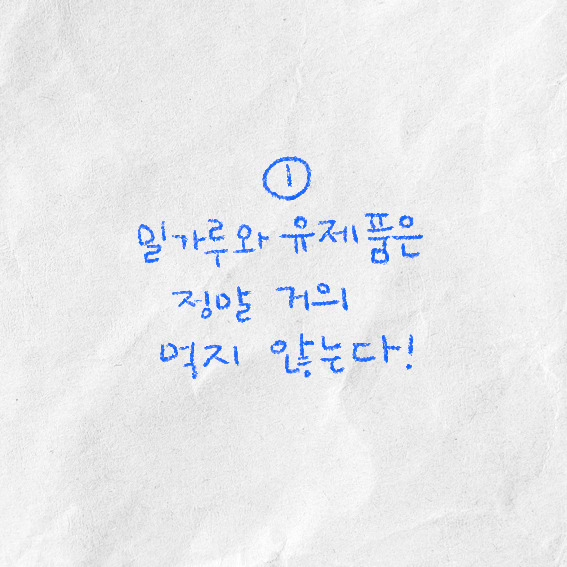 ①
밀가루와 유제품은
정말 거의
먹지 않는다!